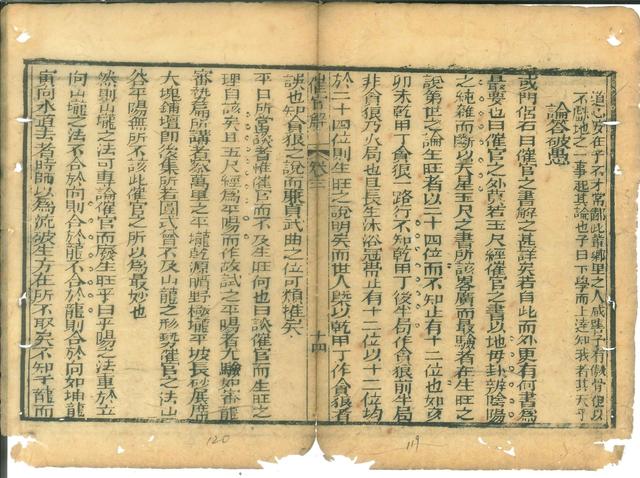 道心安在乎不才常鄙此鄉里之人咸謂子有傲骨但以
不斷地之一事起其論也子曰下學而上達知我者其天乎
論答破愚
或門侶右曰催官之書解之甚詳矣若自此而外更有何書為
最要也曰催官之外莫若玉尺經催官之書以地母卦辨陰陽
之純雜而斷以天星玉尺之書所該畧廣而最驗者在生旺之
說第世之論生旺者以二十四位而不知止有十二位也如亥
卯未乾甲丁貪狼一路行不知乾甲丁後半局作貪狼前半局
非貪狼乃火局也且長生沐浴冠帶止有十二位以十二位均
於二十四位則生旺之說明矣而世人既以乾甲丁作貪狼者
催官解 卷三 十四
誤也知貪狼之說而廉貞武曲之位可類推矣
平日所嘗議者惟催官而不及生旺何也曰談催官而生旺之
理自該矣且玉尺經為平陽而作故試之平陽者尤驗如審龍
審勢篇所講者衆萬里之平壠乾源晴野極壠平坡長砂展席
大塊鋪壇即後集所著圖式曾不及山龍之形勢催官之法山
谷平陽無所不該此催官之所以為最妙也
然則山壠之法可專論催官而廢生旺乎曰平陽之法重於立
向山壠之法不合於向則合於龍不合於龍則合於向如坤龍
寅向水頭去者時師以為流破生方在所不取矣不知于龍而
120
119